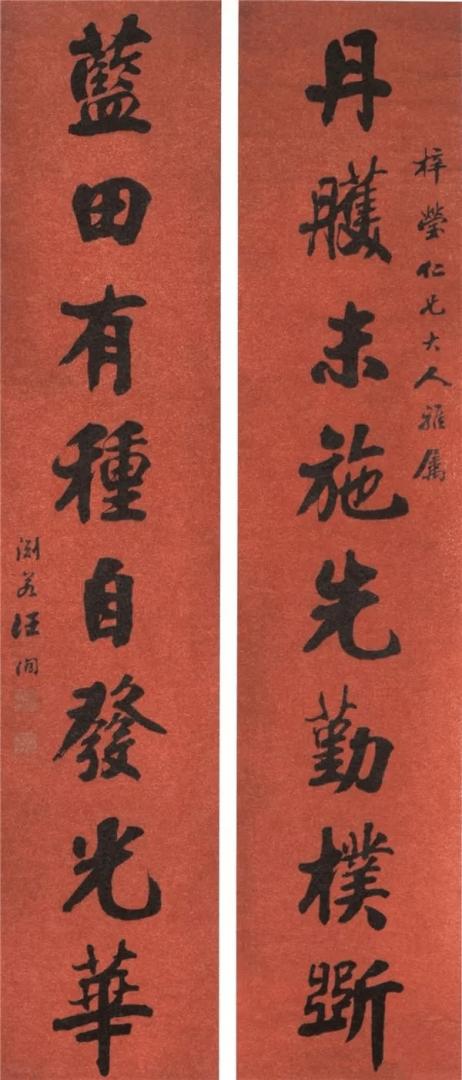 梓瑩仁兄大人雅屬
丹雘未施先勤樸斲
藍田有種自發光華
淵若汪洵